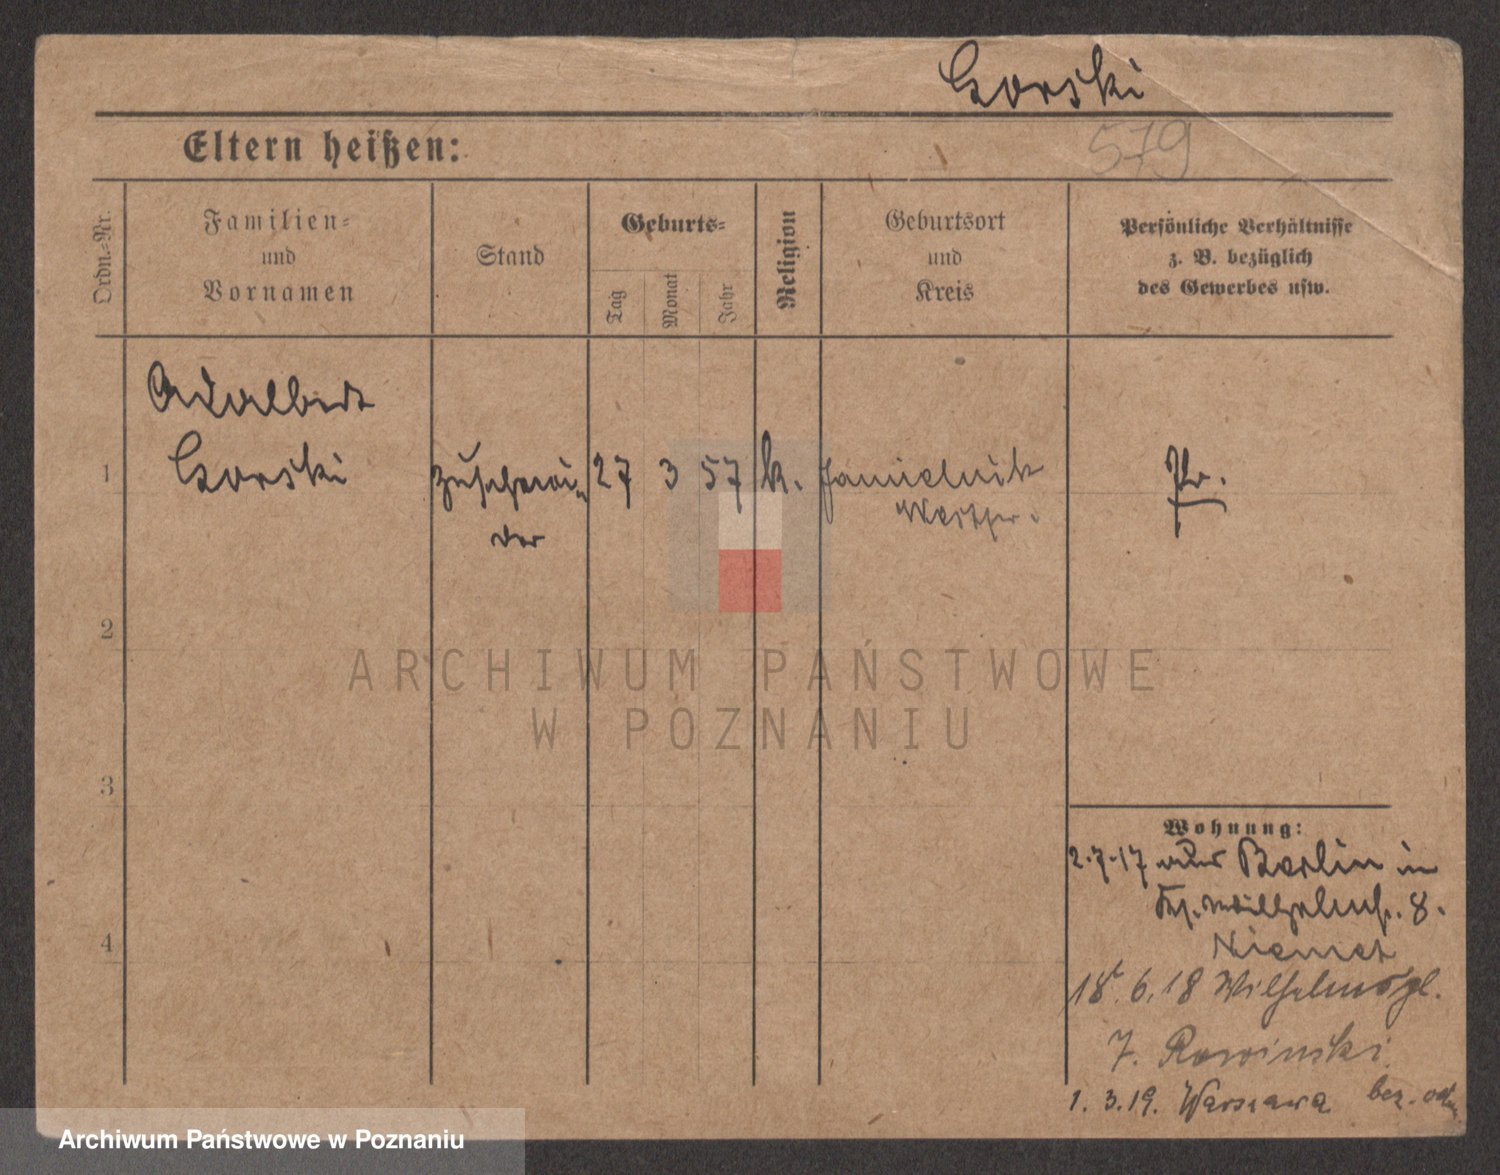 Gorski
579
Eltern heißen:
Ordn.-Nr.
Familien-
und
Vornamen
Stand
Geburts-
Tag
Monat
Jahr
Religion
Geburtsort
und
Kreis
Persönliche Verhältnisse
z. B. bezüglich
des Gewerbes usw.
Adalbert
1 Gorski Zuschnei- 27 3 57 k. Jamielnik Pr.
der Westpr.
2
ARCHIWUM PAŃSTWOWE
W POZNANIU
3
Wohnung:
2.7.17 aus Berlin in
8.
4
18.6.18 Wilhelmspl.
7. Rowinski
1.3.19. Warszawa
Archiwum Państwowe w Poznaniu